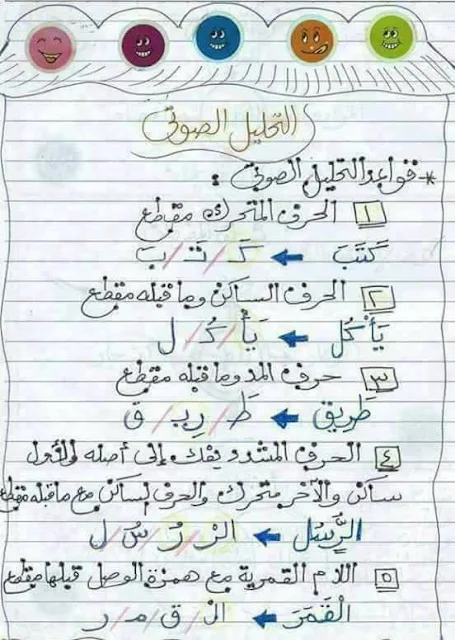 التحليل الصوتي
*- قواعد التحليل الصوتي :
١ الحرف المتحرك مقطع
كَتَبَ ← كَـ / تَـ / بَ
٢ الحرف الساكن وما قبله مقطع
يَأْكُل ← يَأْ / كُـ / ل
٣ حرف المد وما قبله مقطع
طَريق ← طَـ / رِيـ / ق
٤ الحرف المشدد يفك إلى أصله والأول
ساكن والآخر متحرك والحرف الساكن مع ما قبله مقطع
الرُّسُل ← الرْ / رُ / سُـ / ل
٥ اللام القمرية مع همزة الوصل قبلها مقطع
الْقَمَرَ ← الْ / ق / مـ / ر